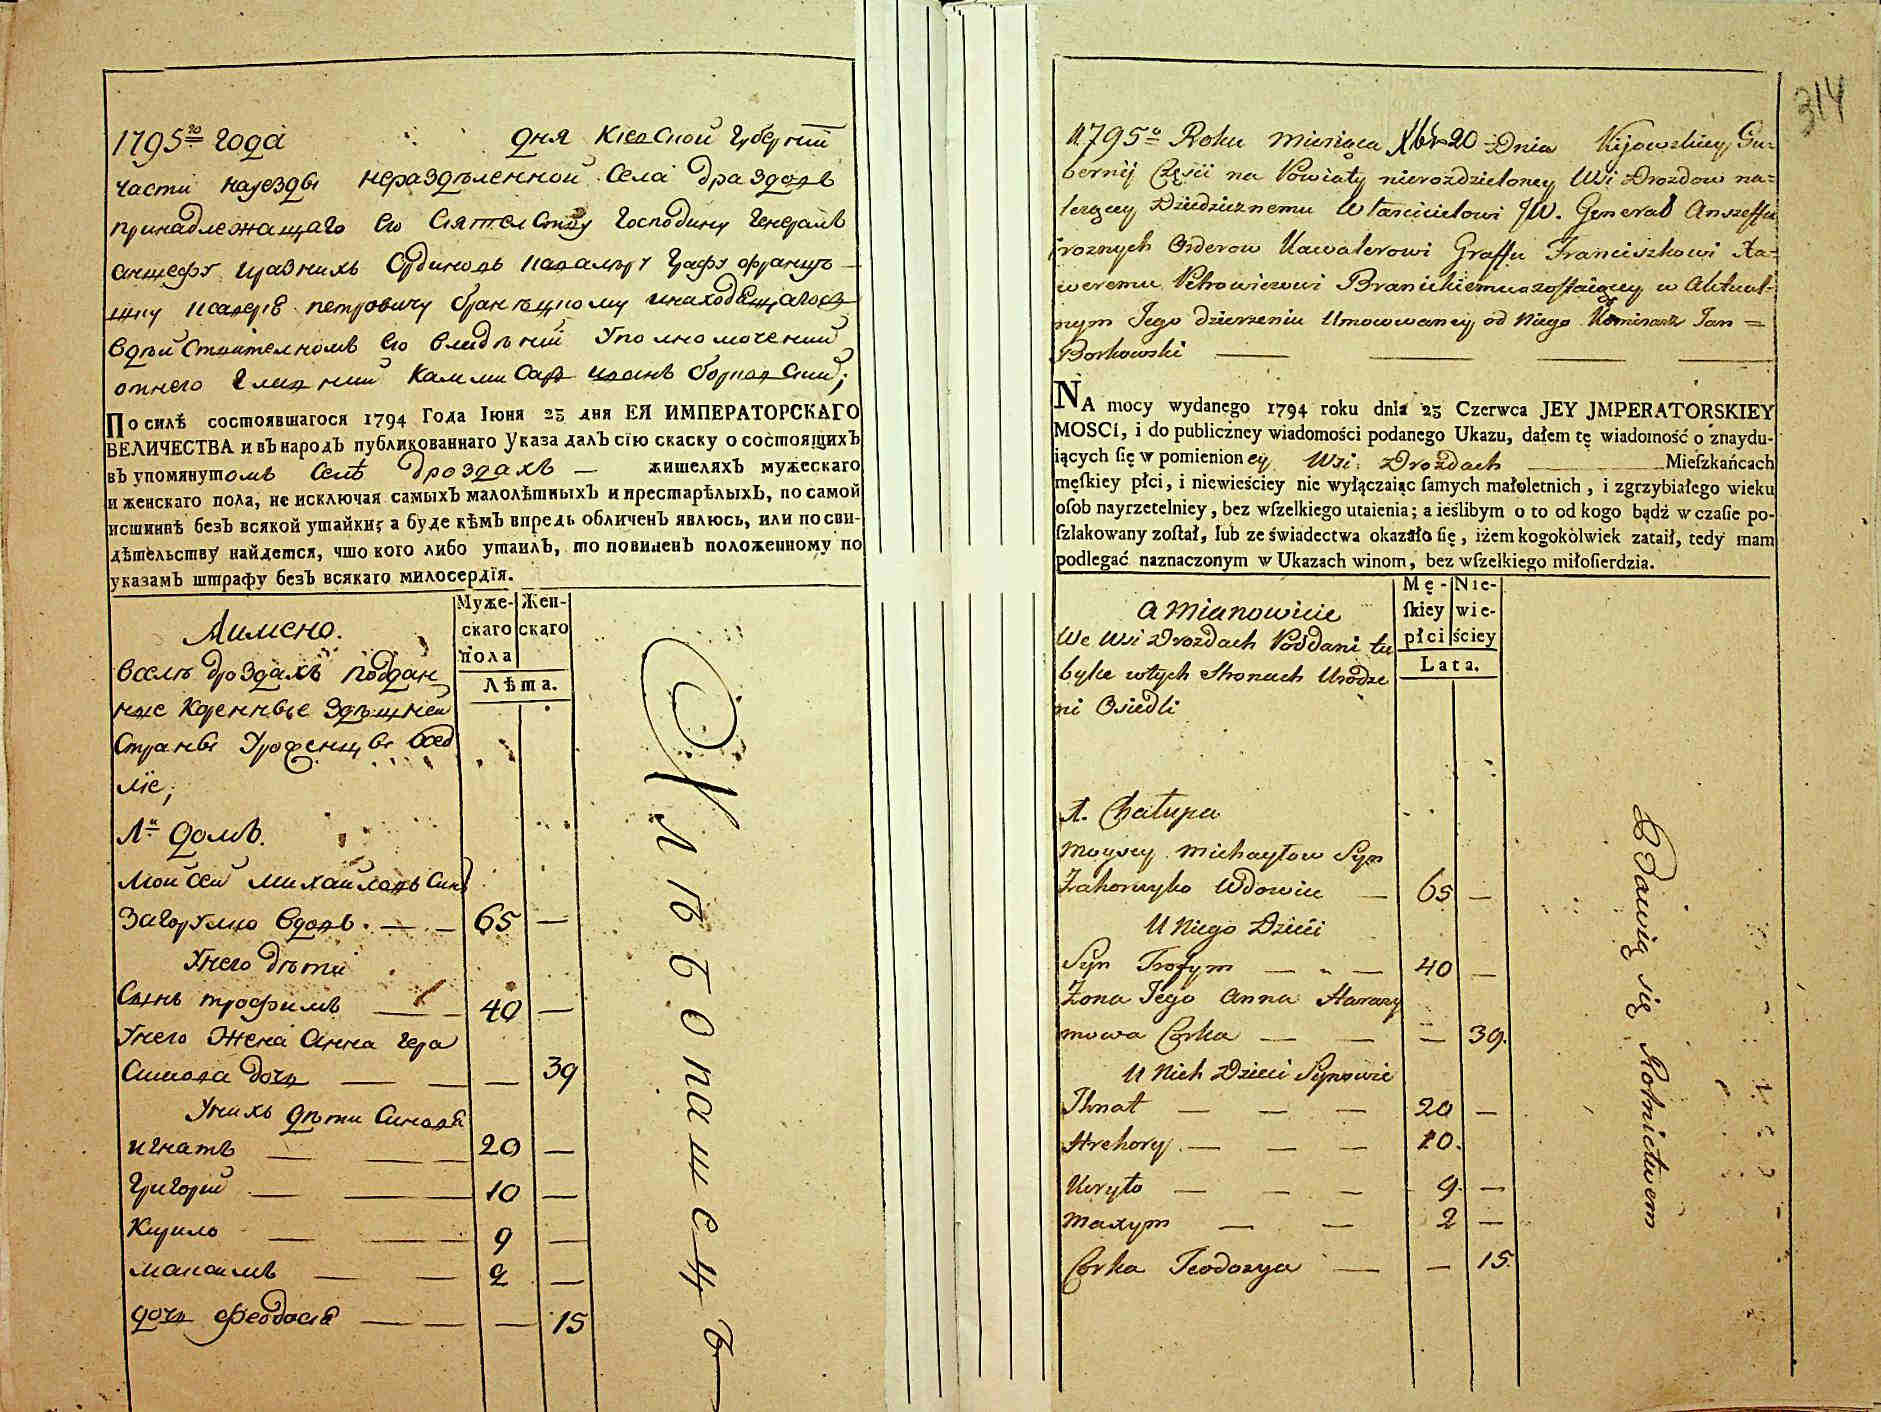 1795го года дня Киевской губернїи
части науезды нераздѣленной села дроздовъ
принадлежащаго его сиятелству Господину Генералъ
аншефу разнихъ ординовъ кавалѣру графу францѣ
петровичу бранѣцкому инаходящагося
вдѣйствителномъ его владѣнїи Уполномочений
отнего коммисаръ иванъ борковский;
По силѣ состоявшагося 1794 Года Іюня 23 дня ЕЯ ИМПЕРАТОРСКАГО
ВЕЛИЧЕСТВА и въ народЪ публикованнаго Указа далЪ сїю скаску о состоящихЪ
въ упомянутомъ селѣ дроздахъ — жителяхЪ мужескаго
и женскаго пола, не исключая самыхЪ малолѣтныхЪ и престарѣлыхЪ, по самой
истиннѣ безЪ всякой утайки; а буде кѣмЪ впредь обличенЪ явлюсь, или по сви-
дѣтельству найдется, что кого либо утаилЪ, то повиненЪ положенному по
указамЪ штрафу безЪ всякаго милосердїя.
Муже- Жен-
скаго скаго
пола
Лѣта.
Аимено.
вселѣ дроздахъ поддан
ние коренные здѣшней
страны урожденцы восѣд
лїе,
1й домъ.
Мойсей михайловъ синъ
Загорулко вдовъ. — — 65 —
Унего дѣти
Сынъ трофимъ — — 40 —
Унего жена анна гера
симова дочь — — — 39
Унихъ дѣти синовя
игнатъ — — — 20 —
григорий — — 10 —
Кирило — — — 9 —
максимъ — — 2 —
дочь феодосия — — — 15
Хлѣбопашецъ
314
1795o Roku Miesiąca Xbr 20 Dnia Kijowskiey Gu-
bernij Części na Powiaty nierozdzieloney Wsi Drozdow na-
leżącey Dziedzicznemu Włascicielowi JW. Generał Anszeffu
roznych Orderow Kawalerowi Graffu Franciszkowi Xa-
weremu Petrowiczowi Branickiemu a zostaiącey w Aktual-
nym Jego dzierzeniu Umocowaney od Niego Komisarz Jan =
Borkowski — — — —
NA mocy wydanego 1794 roku dnia 23 Czerwca JEY JMPERATORSKIEY
MOSCI, i do publiczney wiadomości podanego Ukazu, dałem tę wiadomość o znaydu-
iących ſię w pomienioney Wsi Drozdach — Mieſzkańcach
męſkiey płci, i niewieściey nie wyłączaiąc ſamych małoletnich, i zgrzybiałego wieku
oſob nayrzetelniey, bez wſzelkiego utaienia; a ieślibym o to od kogo bądź w czaſie po-
ſzlakowany zoſtał, lub ze świadectwa okazało ſię, iżem kogokolwiek zataił, tedy mam
podlegać naznaczonym w Ukazach winom, bez wſzelkiego miłoſierdzia.
Mę- Nie-
ſkiey wie-
płci ściey
Lata.
a Mianowicie
We Wsi Drozdach Poddani tu
tylce wtych Stronach Urodze
ni Osiedli
1. Chałupa
Moysey Michayłow Syn
Zahorulko Wdowiec — 65 —
U Niego Dzieci
Syn Trofym — — — 40 —
Zona Jego Anna Harasy
mowa Corka — — — 39.
U Nich Dzieci Synowie
Ihnat — — — 20 —
Hrehory — — — 10.
Kiryło — — — 9. —
Maxym — — 2 —
Corka Teodozya — — 15.
Bawią się Rolnictwem